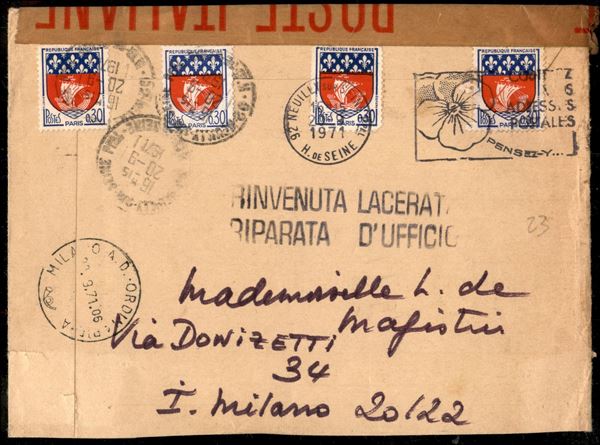 POSTE ITALIANE
REPUBLIQUE FRANÇAISE
POSTES 0,30
PARIS
REPUBLIQUE FRANÇAISE
POSTES 0,30
PARIS
REPUBLIQUE FRANÇAISE
0,30
PARIS
REPUBLIQUE FRANÇAISE
0,30
PARIS
92 NEUILLY
1971
H. DE SEINE
PENSEZ-Y...
16 H 15
20-9
1971
RINVENUTA LACERATA
RIPARATA D'UFFICIO
23
MILANO A.D. ORDINARIA
9.71.06
Mademoiselle L. de
Magistris
Via DONIZETTI
34
I. Milano 20122